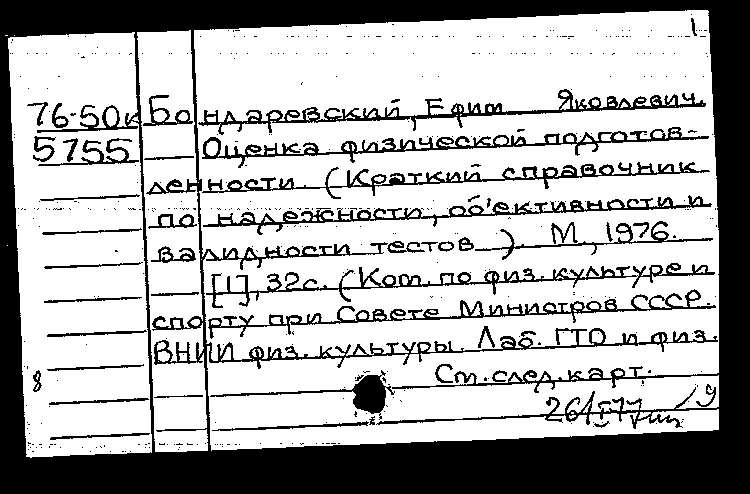 1
76-50к Бондаревский, Ефим Яковлевич.
5755 Оценка физической подготов-
ленности. (Краткий справочник
по надежности, об'ективности и
валидности тестов). М, 1976.
[1], 32с. (Ком. по физ. культуре и
спорту при Совете Министров СССР.
ВНИИ физ. культуры. Лаб. ГТО и физ.
8 См. след. карт.
26/I 77 9